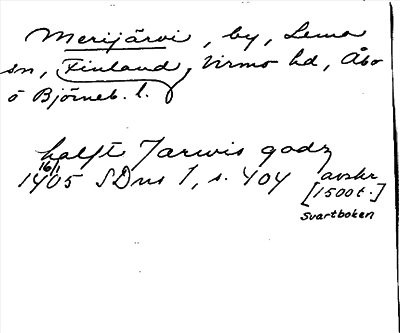 Merijärvi, by, Lemo
sn, Finland, Virmo hd, Åbo
o Björneb. l.
halft Jarwis godz
16/1
1405 SDns 1, s. 404 avskr
[1500t.]
Svartboken